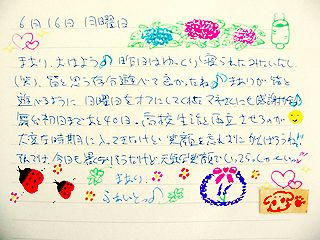 6月16日 月曜日
まあり、おはよう♪ 昨日はゆっくり寝られたみたいだし
(笑)、皆と思う存分遊べて良かったね♪まありが皆と
遊べるように、日曜日をオフにしてくれた
にも感謝
舞台初日まであと40日。高校生活と両立させるのが
大変な時期に入ってきたけど、笑顔を忘れずにがんばろうね!!
では、今日も暑くなりそうだけど元気な笑顔でいってらっしゃーい
まあり
ふぁいと